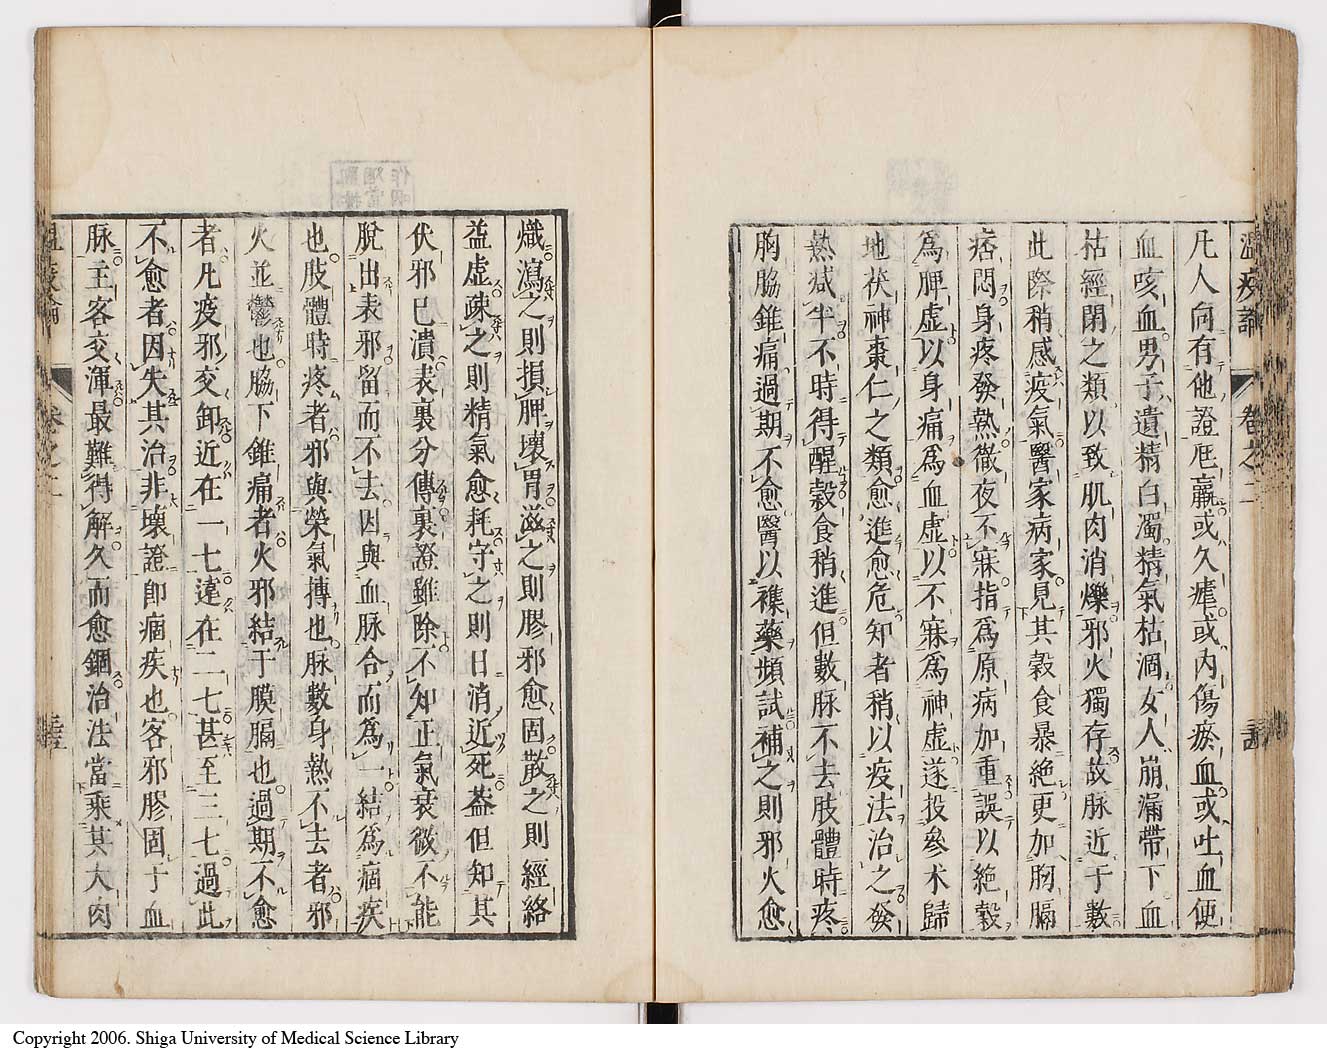 溫疫論 卷之二
凡人向有他證尫羸或久瘧或內傷瘀血或吐血便
血咳血男子遺精白濁精氣枯涸女人崩漏帶下血
枯經閉之類以致肌肉消爍邪火獨存故脉近于數
此際稍感疫氣醫家病家見其穀食暴絕更加胸膈
痞悶身疼發熱徹夜不寐指爲原病加重誤以絕穀
爲脾虛以身痛爲血虛以不寐爲神虛遂投參术歸
地茯神棗仁之類愈進愈危知者稍以疫法治之發
熱減半不時得醒穀食稍進但數脉不去肢體時疼
胸脇錐痛過期不愈醫以襍藥頻試補之則邪火愈
熾瀉之則損脾壞胃滋之則膠邪愈固散之則經絡
益虛疎之則精氣愈耗守之則日消近死葢但知其
伏邪已潰表裏分傳裏證雖除不知正氣衰微不能
脫出表邪留而不去因與血脉合而爲一結爲痼疾
也肢體時疼者邪與榮氣搏也脉數身熱不去者邪
火並鬱也脇下錐痛者火邪結于膜膈也過期不愈
者凡疫邪交卸近在一七遠在二七甚至三七過此
不愈者因失其治非壞證卽痼疾也客邪膠固于血
脉主客交渾最難得解久而愈錮治法當乘其大肉
卷之二
Copyright 2006. Shiga University of Medical Science Library